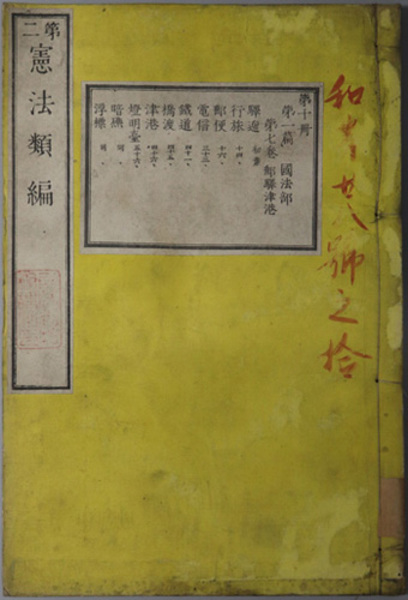 第二
憲法類編
第十冊
第一篇 國法部
第七卷 郵驛津港
驛遞 初葉
行旅 十四、
郵便 十六、
電信 三十三、
鐵道 四十一、
橋渡 四十五、
津港 四十六、
燈明臺 五十六、
暗礁 同、
浮標 同、
號之拾